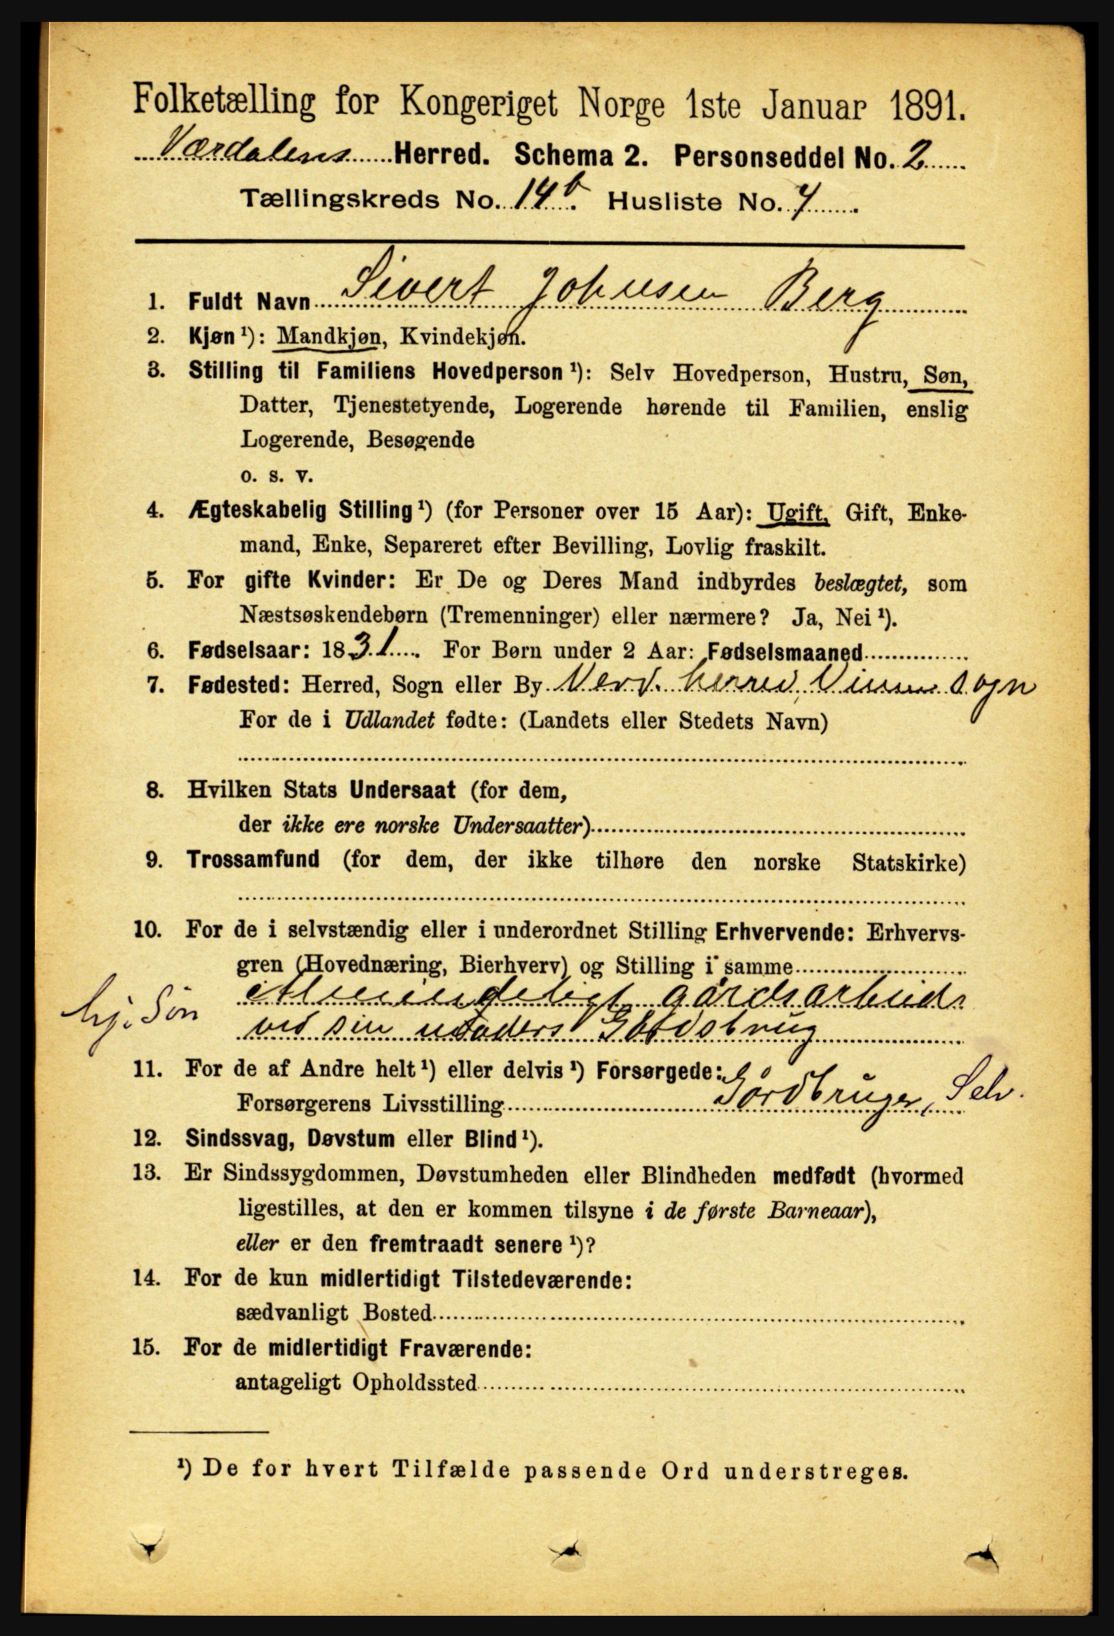 Folketælling for Kongeriget Norge 1ste Januar 1891.
Værdalens Herred. Schema 2. Personseddel No. 2
Tællingskreds No. 14b. Husliste No. 7.
1. Fuldt Navn Sivert Johnsen Berg
2. Kjøn ¹): Mandkjøn, Kvindekjøn.
3. Stilling til Familiens Hovedperson ¹): Selv Hovedperson, Hustru, Søn,
Datter, Tjenestetyende, Logerende hørende til Familien, enslig
Logerende, Besøgende
o. s. v.
4. Ægteskabelig Stilling ¹) (for Personer over 15 Aar): Ugift, Gift, Enke-
mand, Enke, Separeret efter Bevilling, Lovlig fraskilt.
5. For gifte Kvinder: Er De og Deres Mand indbyrdes beslægtet, som
Næstsøskendebørn (Tremenninger) eller nærmere? Ja, Nei ¹).
6. Fødselsaar: 1831. For Børn under 2 Aar: Fødselsmaaned
7. Fødested: Herred, Sogn eller By Verd. herred, Vinne sogn
For de i Udlandet fødte: (Landets eller Stedets Navn)
8. Hvilken Stats Undersaat (for dem,
der ikke ere norske Undersaatter)
9. Trossamfund (for dem, der ikke tilhøre den norske Statskirke)
10. For de i selvstændig eller i underordnet Stilling Erhvervende: Erhvervs-
gren (Hovednæring, Bierhverv) og Stilling i samme
hj. Søn Almindeligt gårdsarbeid
ved sin Faders Gårdsbrug
11. For de af Andre helt ¹) eller delvis ¹) Forsørgede:
Forsørgerens Livsstilling Gårdbruger, Selv.
12. Sindssvag, Døvstum eller Blind ¹).
13. Er Sindssygdommen, Døvstumheden eller Blindheden medfødt (hvormed
ligestilles, at den er kommen tilsyne i de første Barneaar),
eller er den fremtraadt senere ¹)?
14. For de kun midlertidigt Tilstedeværende:
sædvanligt Bosted
15. For de midlertidigt Fraværende:
antageligt Opholdssted
¹) De for hvert Tilfælde passende Ord understreges.